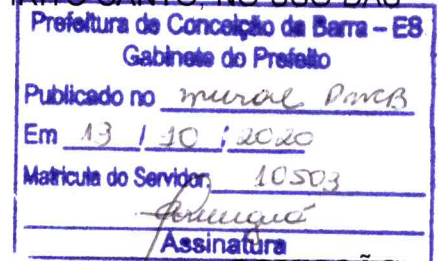 Prefeitura de Conceição da Barra – ES
Gabinete do Prefeito
Publicado no mural PMCB
Em 13 / 10 / 2020
Matricula do Servidor: 10503
Assinatura